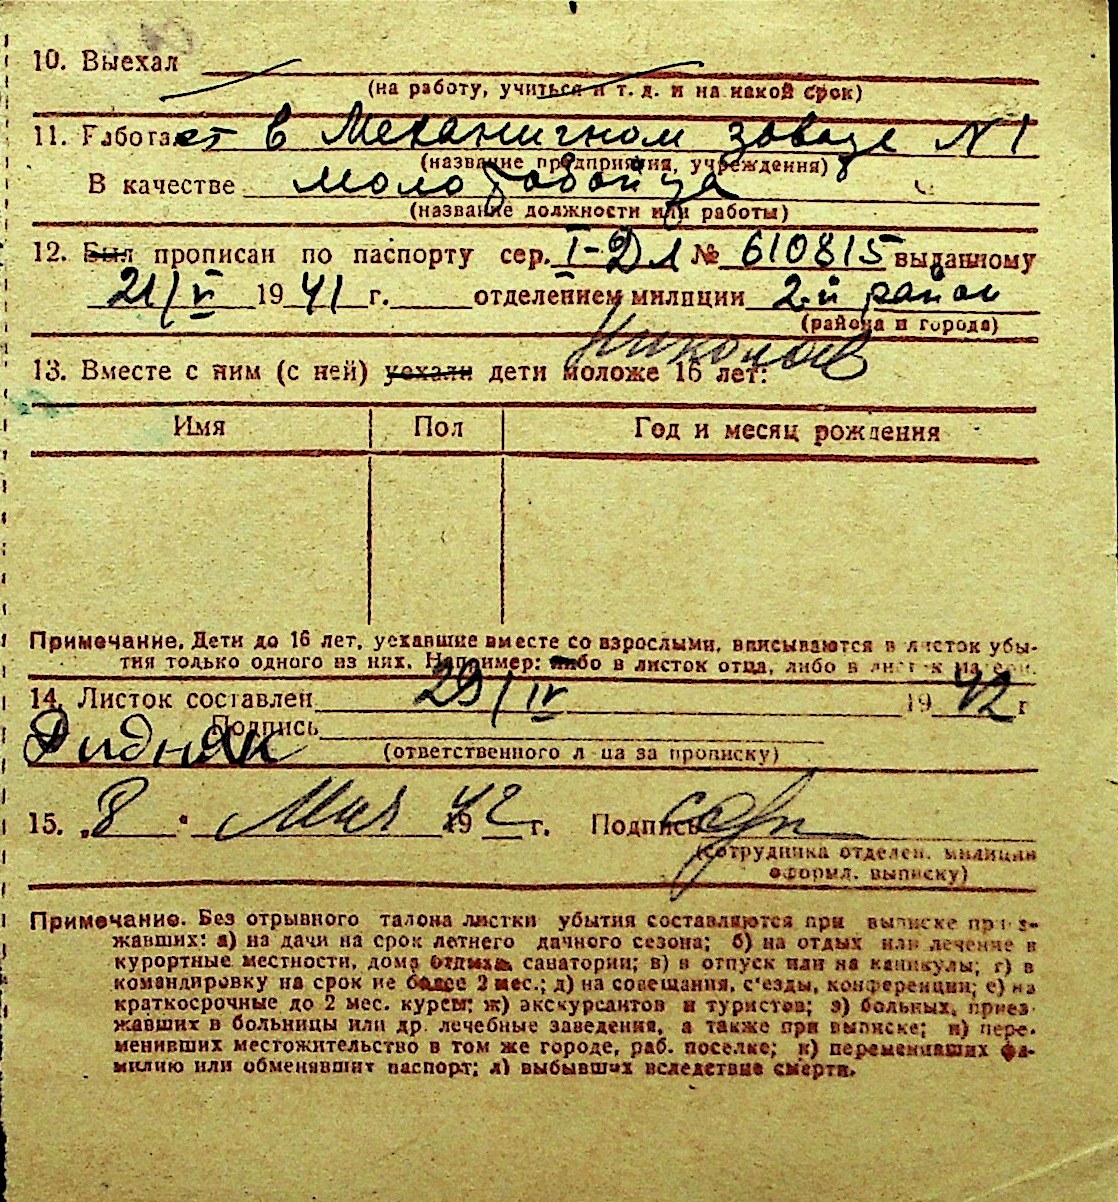 10. Выехал
(на работу, учиться и т. д. и на какой срок)
11. Работает в Механичном заводе N 1
(название предприятия, учреждения)
В качестве молотобойца
(название должности или работы)
12. Был прописан по паспорту сер. I-ДЛ № 610815 выданному
21/V 1941 г. отделением милиции 2-й район
(района и города)
Николаев
13. Вместе с ним (с ней) уехали дети моложе 16 лет:
Имя Пол Год и месяц рождения
Примечание. Дети до 16 лет, уехавшие вместе со взрослыми, вписываются в листок убы-
тия только одного из них. Например: либо в листок отца, либо в листок матери.
14. Листок составлен 29/IV 1942 г
Подпись
Ридняк
(ответственного лица за прописку)
15. „8" Мая 1942 г. Подпись
(сотрудника отделен. милиции
оформл. выписку)
Примечание. Без отрывного талона листки убытия составляются при выписке приез-
жавших: а) на дачи на срок летнего дачного сезона; б) на отдых или лечение в
курортные местности, дома отдыха, санатории; в) в отпуск или на каникулы; г) в
командировку на срок не более 2 мес.; д) на совещания, с'езды, конференции; е) на
краткосрочные до 2 мес. курсы; ж) экскурсантов и туристов; з) больных, приез-
жавших в больницы или др. лечебные заведения, а также при выписке; и) пере-
менивших местожительство в том же городе, раб. поселке; к) переменивших фа-
милию или обменявших паспорт; л) выбывших вследствие смерти.